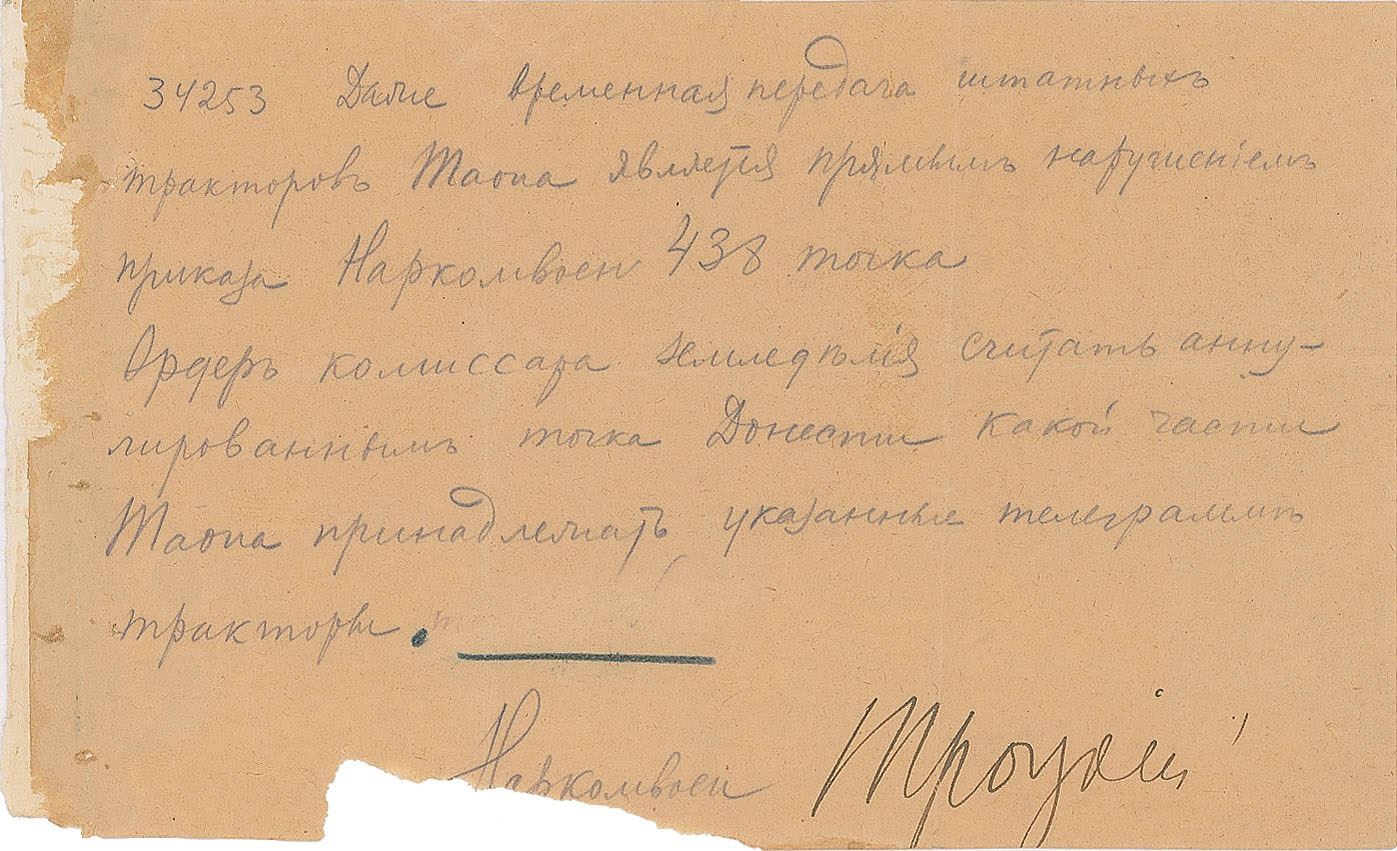 34253 Даже временная передача штатныхъ
тракторовъ Таона является прямымъ нарушеніемъ
приказа Наркомвоен 438 точка
Ордеръ комиссара земледѣлія считать анну-
лированнымъ точка Донести какой части
Таона принадлежатъ указанные телеграммѣ
тракторы.
Наркомвоен Троцкій